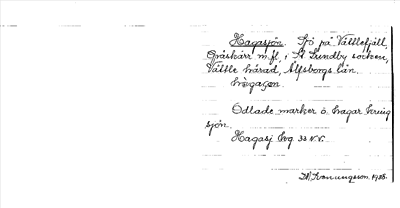 Hagasjön. Sjö på Vättlefjäll,
Gråskärr m.fl. i St. Lundby socken,
Vättle härad, Älfsborgs län.
hàgaʃøn
Odlade marker o. hagar kring
sjön.
Hagasj Övg 33 N.V.
1928.